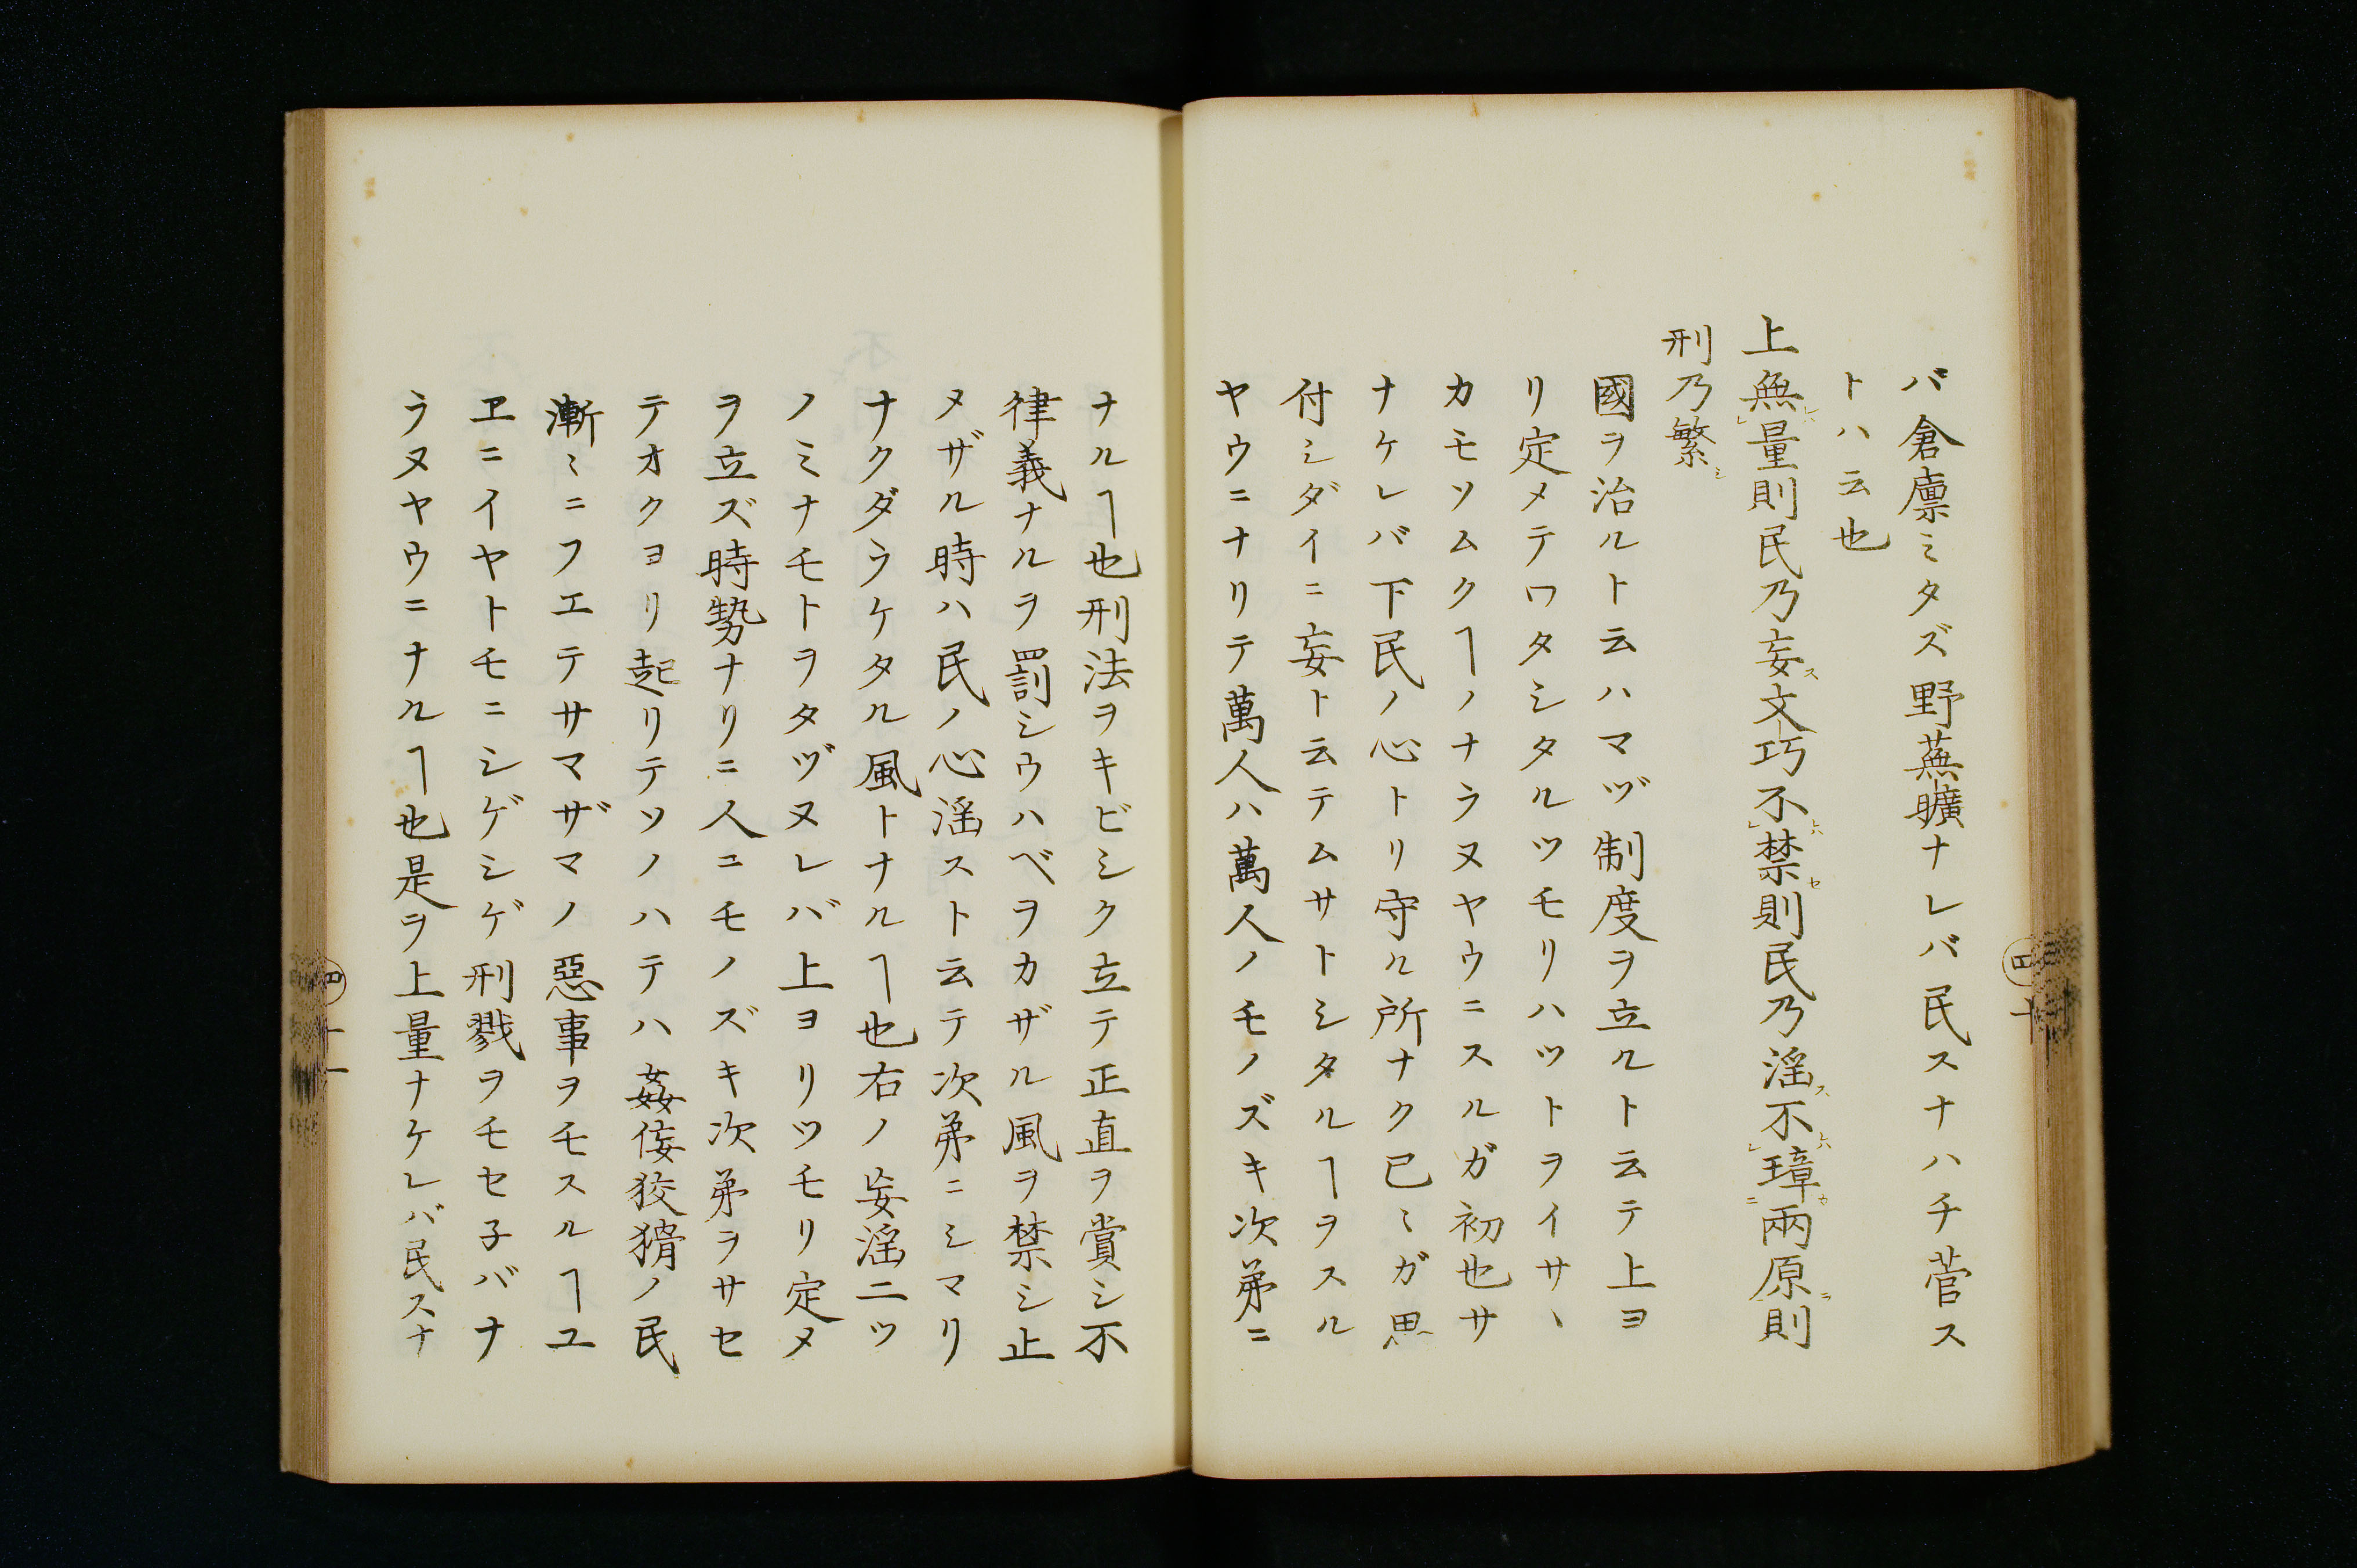 バ倉廩ミタズ野蕪曠ナレバ民スナハチ菅ス
トハ云也
上無量則民乃妄文巧不禁則民乃淫不璋兩原則
刑乃繁
國ヲ治ルト云ハマヅ制度ヲ立ルト云テ上ヨ
リ定メテワタシタルツモリハツトヲイサヽ
カモソムクヿノナラヌヤウニスルガ初也サ
ナケレバ下民ノ心トリ守ル所ナク已ミガ思
付シダイニ妄ト云テムサトシタルヿヲスル
ヤウニナリテ萬人ハ萬人ノモノズキ次第ニ
ナルヿ也刑法ヲキビシク立テ正直ヲ賞シ不
律義ナルヲ罰シウハベヲカザル風ヲ禁シ止
メザル時ハ民ノ心淫スト云テ次第ニシマリ
ナクダラケタル風トナルヿ也右ノ妄淫二ツ
ノミナモトヲタヅヌレバ上ヨリツモリ定メ
ヲ立ズ時勢ナリニ人ニモノズキ次第ヲサセ
テオクヨリ起リテソノハテハ姦侫狡猾ノ民
漸ミニフエテサマザマノ惡事ヲモスルヿユ
ヱニイヤトモニシゲシゲ刑戮ヲモセ子バナ
ラヌヤウニナルヿ也是ヲ上量ナケレバ民スナ
四 十
四 十一